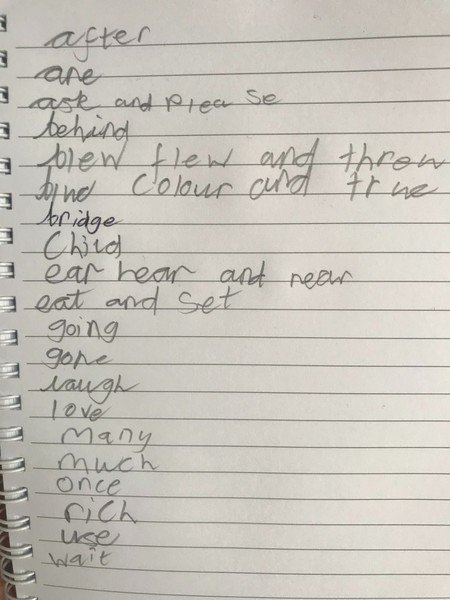 after
are
ask and Please
behind
blew flew and threw
blue Colour and true
bridge
Child
ear hear and near
eat and set
going
gone
laugh
love
many
much
once
rich
use
wait